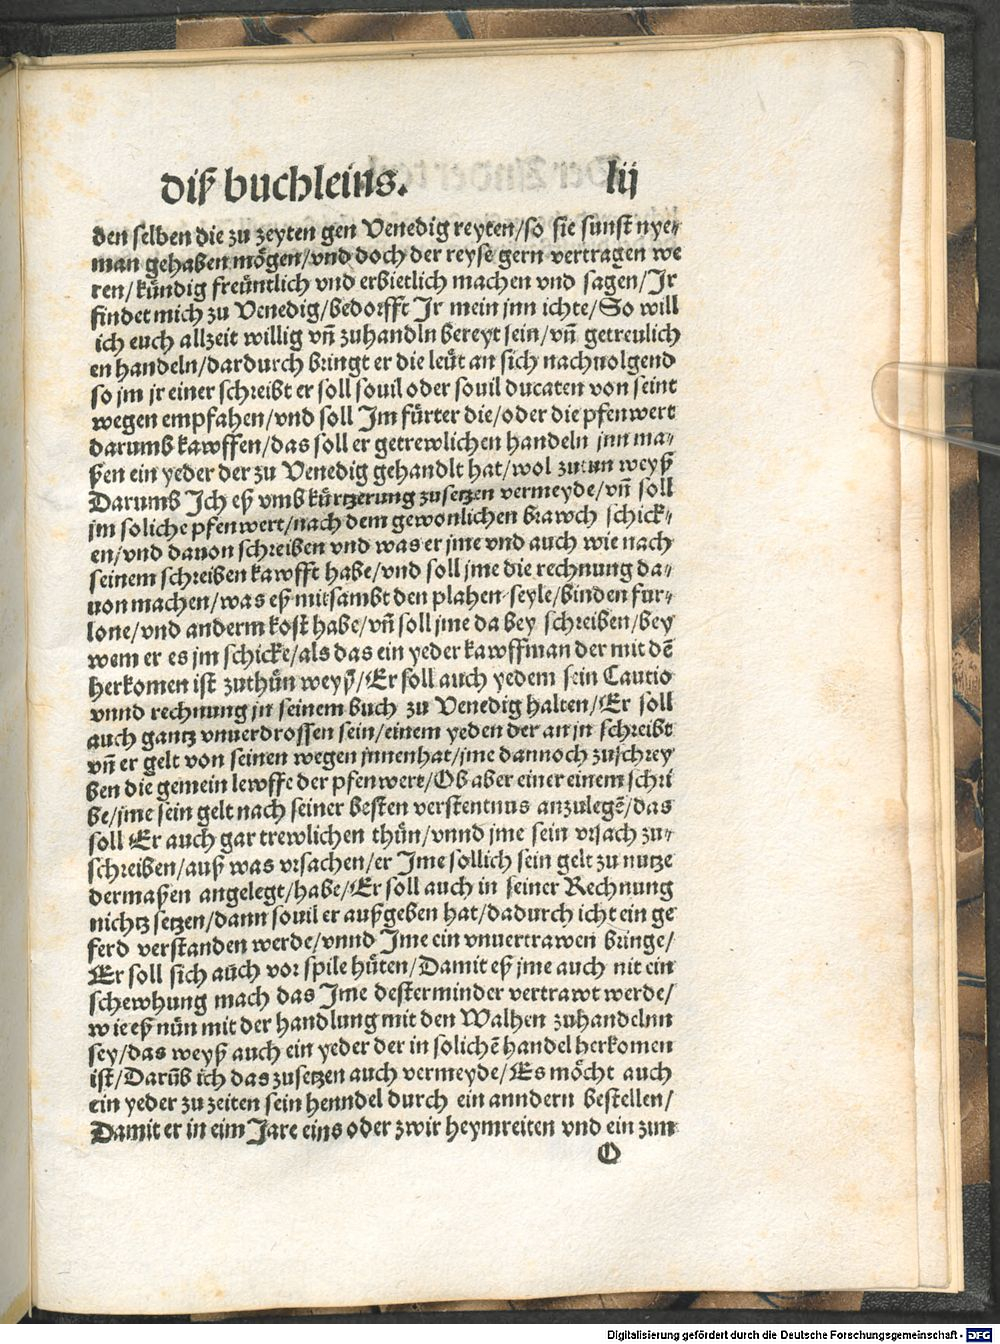 diß buchleins. lij
den selben die zu zeyten gen Venedig reyten/so sie sunst nye⸗
man gehaben mögen/vnd doch der reyse gern vertragen we
ren/kündig freüntlich vnd erbietlich machen vnd sagen/Jr
findet mich zu Venedig/bedorfft Jr mein jnn ichte/So will
ich euch allzeit willig vñ zuhandln bereyt sein/vñ getreulich
en handeln/dardurch bringt er die leüt an sich nachuolgend
so jm jr einer schreibt er soll souil oder souil ducaten von seint
wegen empfahen/vnd soll Jm fürter die/oder die pfenwert
darumb kawffen/das soll er getrewlichen handeln jnn ma⸗
ßen ein yeder der zu Venedig gehandlt hat/wol zutun weyß
Darumb Jch eß vmb kürtzerung zusetzen vermeyde/vñ soll
jm soliche pfenwert/nach dem gewonlichen brawch schick⸗
en/vnd dauon schreiben vnd was er jme vnd auch wie nach
seinem schreiben kawfft habe/vnd soll jme die rechnung da⸗
uon machen/was eß mitsambt den plahen seyle/binden fur⸗
lone/vnd anderm kost habe/vñ soll jme da bey schreiben/bey
wem er es jm schicke/als das ein yeder kawffman der mit dē
herkomen ist zuthün weyß/Er soll auch yedem sein Cautio
vnnd rechnung jn seinem buch zu Venedig halten/Er soll
auch gantz vnuerdrossen sein/einem yeden der an jn schreibt
vñ er gelt von seinen wegen jnnenhat/jme dannoch zuschrey
ben die gemein lewffe der pfenwert/Ob aber einer einem schri
be/jme sein gelt nach seiner besten verstentnus anzulegē/das
soll Er auch gar trewlichen thün/vnnd jme sein vrsach zu⸗
schreiben/auß was vrsachen/er Jme sollich sein gelt zu nutze
dermaßen angelegt/habe/Er soll auch in seiner Rechnung
nichtz setzen/dann souil er außgeben hat/dadurch icht ein ge
ferd verstanden werde/vnnd Jme ein vnuertrawen bringe/
Er soll sich auch vor spile hüten/Damit eß jme auch nit ein
schewhung mach das Jme desterminder vertrawt werde/
wie eß nün mit der handlung mit den Walhen zuhandelnn
sey/das weyß auch ein yeder der in solichē handel herkomen
ist/Darūb ich das zusetzen auch vermeyde/Es möcht auch
ein yeder zu zeiten sein henndel durch ein anndern bestellen/
Damit er in eim Jare eins oder zwir heymreiten vnd ein zim
O
Digitalisierung gefördert durch die Deutsche Forschungsgemeinschaft - DFG